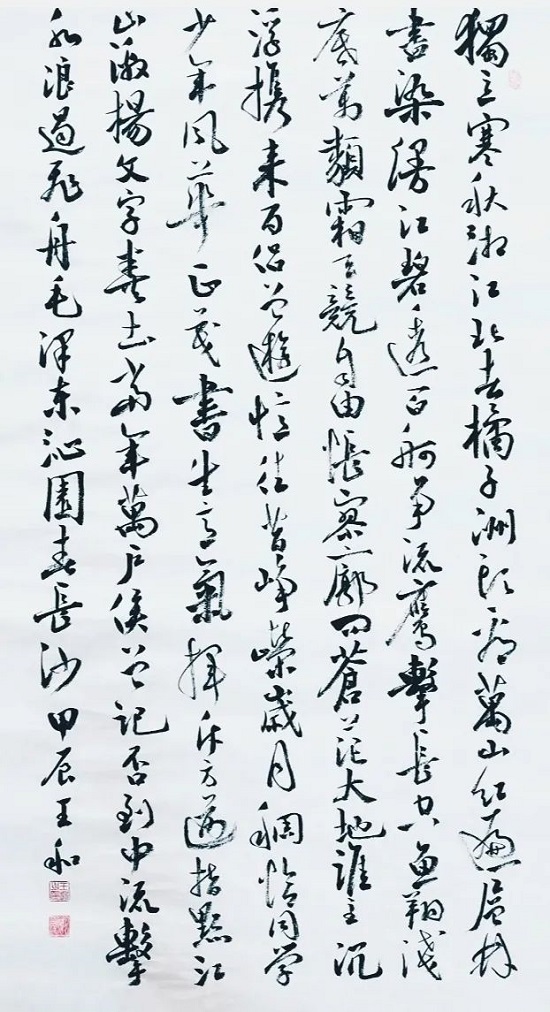 獨立寒秋湘江北去橘子洲頭看萬山紅遍層林
盡染漫江碧透百舸爭流鷹擊長空魚翔淺
底萬類霜天競自由悵寥廓問蒼茫大地誰主沉
浮攜来百侶曾遊憶往昔崢嶸歲月稠恰同學
少年風華正茂書生意氣揮斥方遒指點江
山激揚文字糞土當年萬戶侯曾記否到中流擊
水浪遏飛舟毛澤東沁園春長沙甲辰王和